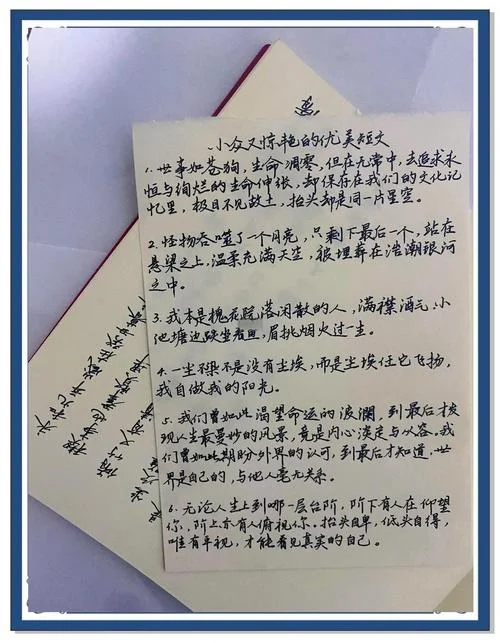 小众又惊艳的优美短文
1. 世事如苍狗，生命凋零，但在无常中，去追求永
恒与绚烂的生命伸张，却保存在我们的文化记
忆里，极目不见故土，抬头却是同一片星空。
2. 怪物吞噬了一个月亮，只剩下最后一个，站在
悬梁之上，温柔充满天空，被埋葬在浩瀚银河
之中。
3. 我本是槐花院落闲散的人，满襟酒气，小
池塘边跌坐看鱼，眉挑烟火过一生。
4. 一尘不染不是没有尘埃，而是尘埃任它飞扬，
我自做我的阳光。
5. 我们曾如此渴望命运的波澜，到最后才发
现人生最曼妙的风景，竟是内心淡定与从容。我
们曾如此期盼外界的认可，到最后才知道：世
界是自己的，与他人毫无关系。
6. 无论人生上到哪一层台阶，阶下有人在仰望
你，阶上亦有人俯视你。抬头自卑，低头自得，
唯有平视，才能看见真实的自己。